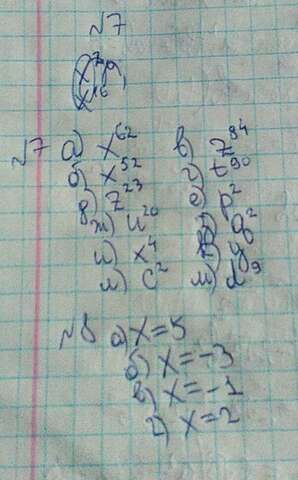 №7
№7 а) x^62 в) z^84
б) x^52 г) t^90
z^23 е) p^2
ж) u^20 q^2
и) x^4 y
л) c^2 м) d^9
№8 а) x=5
б) x=-3
в) x=-1
г) x=2